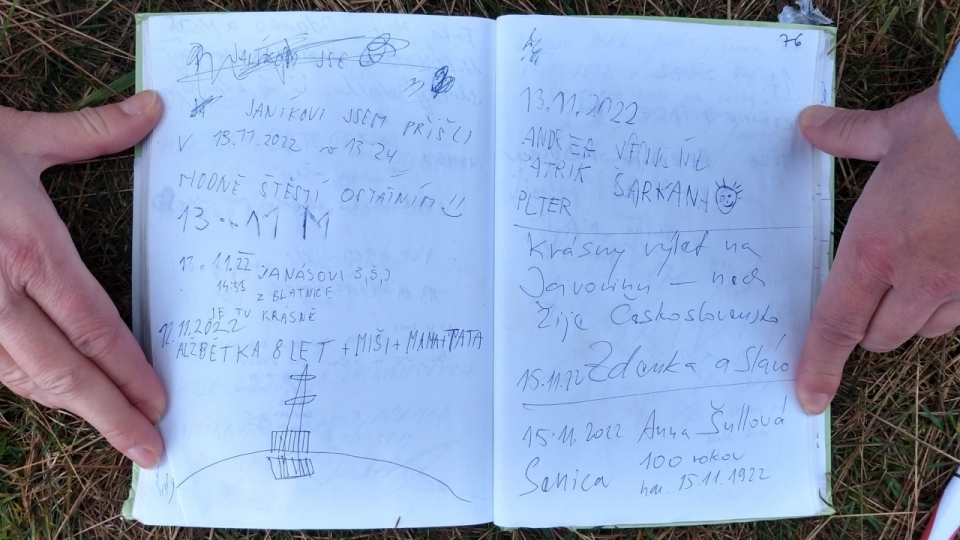 JSE
JANÍKOVI JSEM PŘIŠLI
V 13.11.2022 13:24
HODNĚ ŠTĚSTÍ OSTATNÍM !!
13.11
13.11.22 JANÁSOVI
14:35 Z BLATNICE
JE TU KRÁSNĚ
12.11.2022
ALŽBĚTKA 8 LET + MIŠI + MAMA + TATA
76
13.11.2022
ANDREA
PATRIK ŠARKANY
PETER
Krásny výlet na
Javorinu – nech
Žije Československo
15.11.22 Zdenka a Slávo
15.11.2022 Anna Šullová
Senica 100 rokov
nar. 15.11.1922